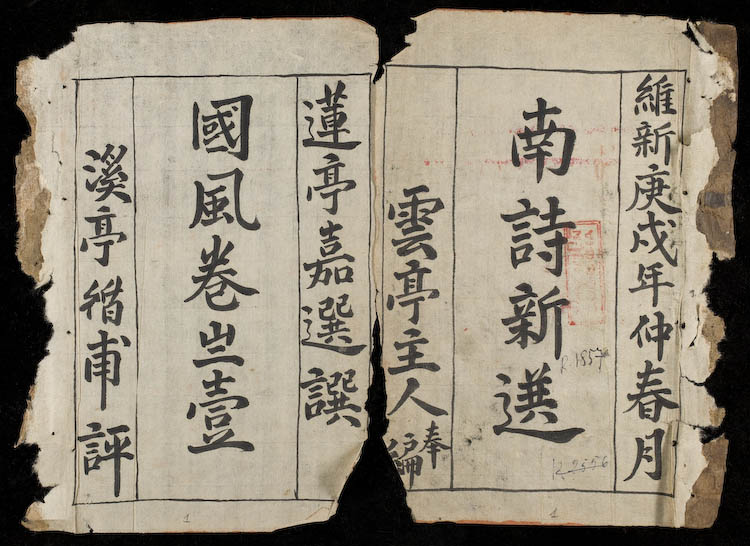 維新庚戌年仲春月
南詩新選
雲亭主人奉編
R 1857
R 2556
1
蓮亭嘉選譔
國風卷㞢壹
溪亭循甫評
1